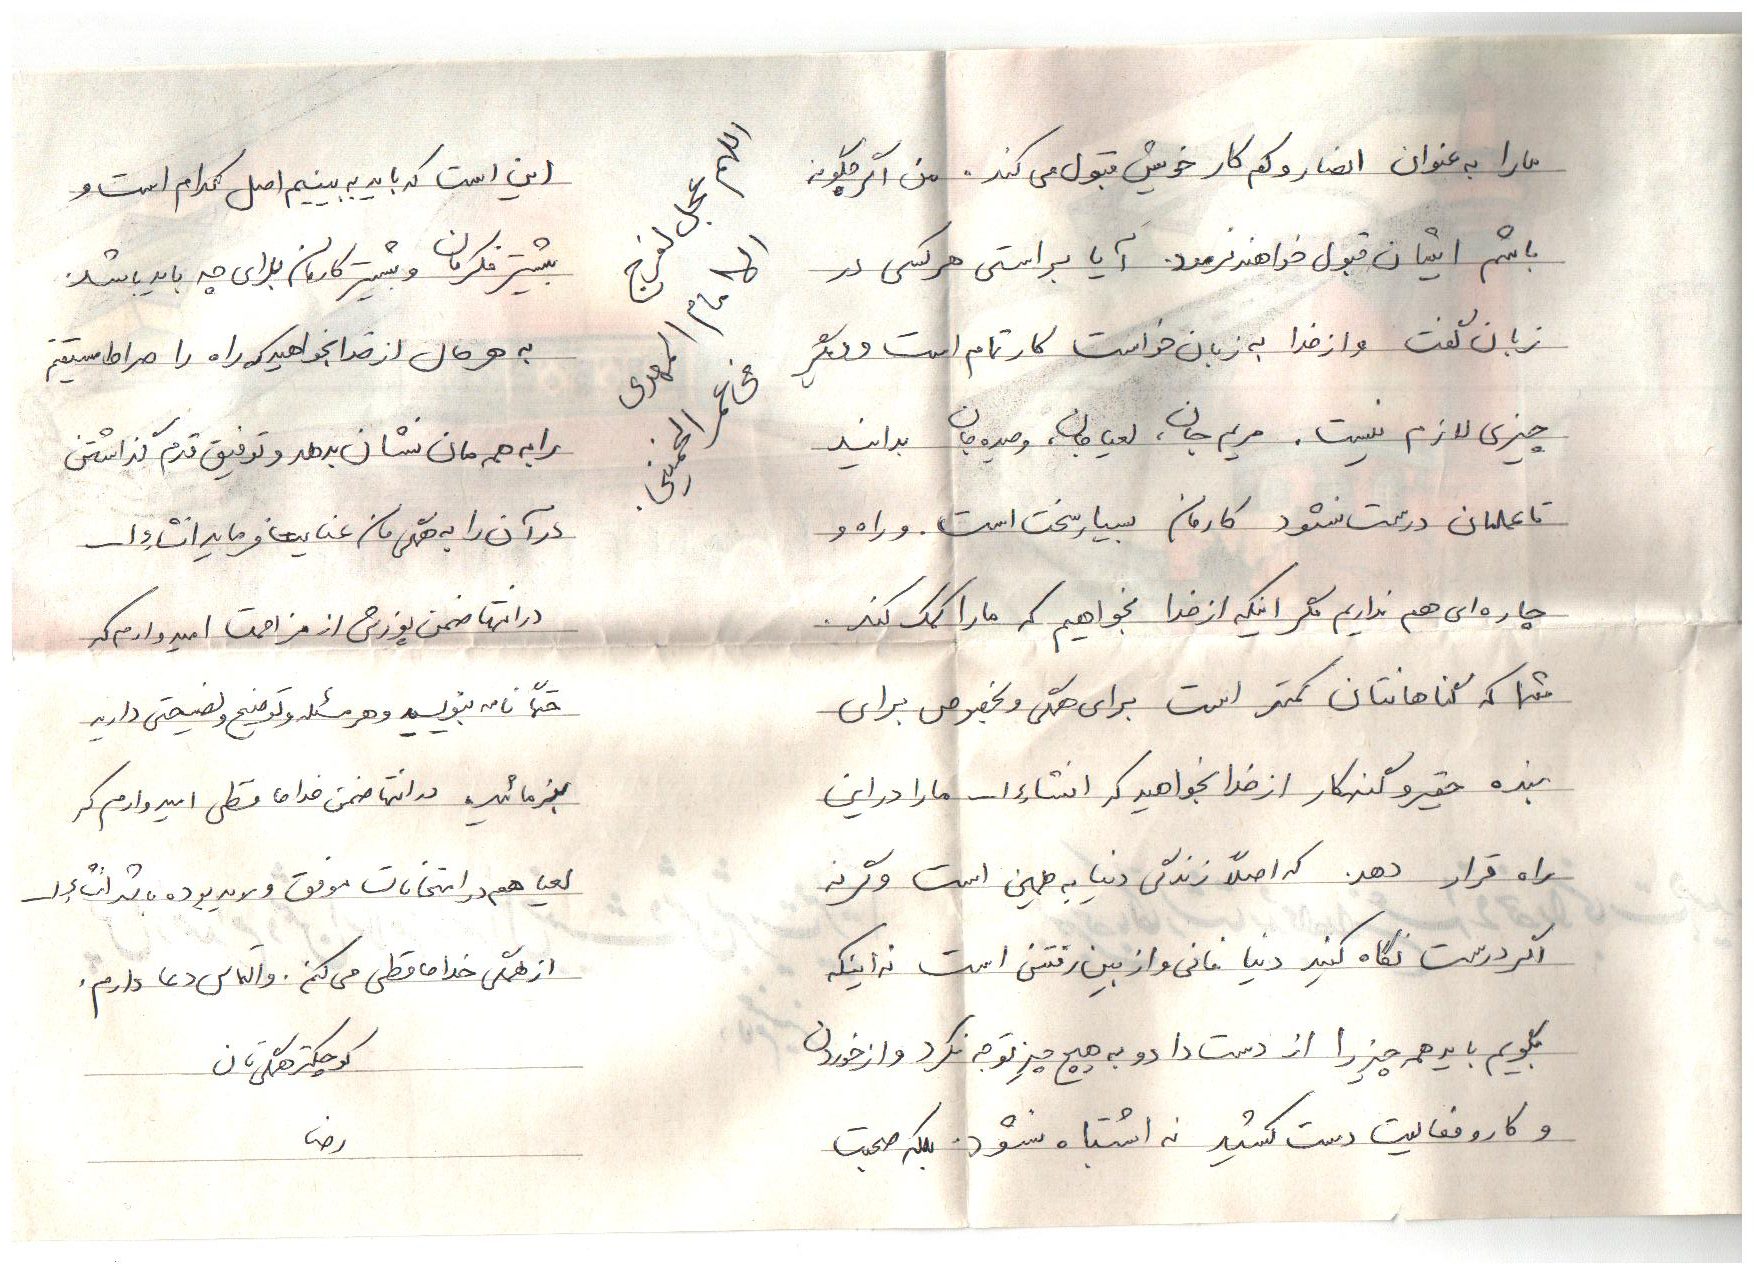 مارا به عنوان انصار و کم کار خویش قبول می کند. من اگر چگونه
باشم ایشان قبول خواهند فرمود. آیا براستی هرکسی در
زبان گفت و از خدا به زبان خواست کار تمام است و دیگر
چیزی لازم نیست. مریم جان، لعیا جان، و جان بدانید
تا عملمان درست نشود کارمان بسیار سخت است. و راه و
چاره ای هم نداریم مگر اینکه از خدا بخواهیم که مارا کمک کند.
شما که گناهانتان کمتر است برای همگی و بخصوص برای
بنده حقیر و گنهکار از خدا بخواهید که انشاءا... مارا در این
راه قرار دهد. که اصلاً زندگی دنیا به همین است وگرنه
اگر درست نگاه کنید دنیا فانی و از بین رفتنی است نه اینکه
بگویم باید همه چیز را از دست داد و به هیچ چیز توجه نکرد و از خوردن
و کار و فعالیت دست کشید نه اشتباه نشود. بلکه صحبت
اللهم عجل لفرج
امام المهدی
الخمینی.
این است که باید به ببینیم اصل کدام است و
بیشتر فکرمان و بیشتر کارمان برای چه باید باشد.
به هر حال از خدا بخواهید که راه را صراط مستقیم
را به همه مان نشان بدهد و توفیق قدم گذاشتن
در آن را به همگی مان عنایت فرماید انشاءا...
در انتها ضمن پوزش از مزاحمت امیدوارم که
حتماً نامه بنویسید و هر مسئله و توضیح و نصیحتی دارید
بفرمائید. در انتها ضمن خداحافظی امیدوارم که
لعیا هم در امتحانات موفق و بوده باشد انشاءا...
از همگی خداحافظی می کنم. و التماس دعا دارم.
کوچکتر همگی تان
رضا